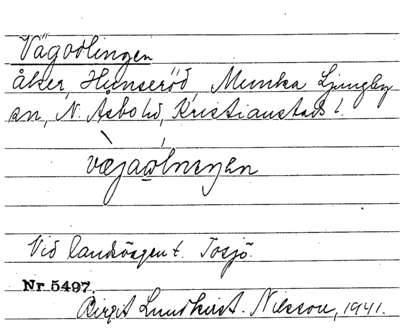 Vägodlingen
åker, Hunseröd, Munka Ljungby
sn, N. Åsbo hd, Kristianstads l.
vægaọlneŋen
Vid landsvägen t. Tossjö.
Nr 5497.
Birgit Lundkvist. Nilsson, 1941.